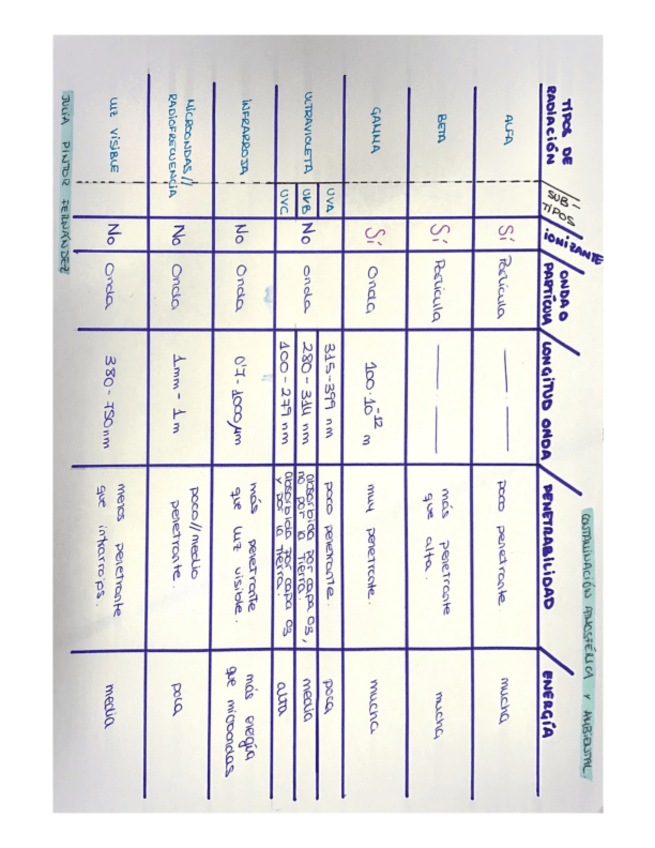 CONTAMINACIÓN ATMOSFÉRICA Y AMBIENTAL
TIPOS DE
RADIACIÓN
SUB-
TIPOS
IONIZANTE
ONDA O
PARTÍCULA
LONGITUD ONDA
PENETRABILIDAD
ENERGÍA
ALFA
Sí
Partícula
poco penetrante
mucha
BETA
Sí
Partícula
más penetrante
que alfa.
mucha
GAMMA
Sí
Onda
100·10⁻¹² m
muy penetrante.
mucha
ULTRAVIOLETA
UVA
UVB
UVC
No
onda
315-399 nm
poco penetrante.
poca
280-314 nm
absorbida por capa O3,
no por la Tierra.
media
100-279 nm
absorbida por capa O3
y por la Tierra.
alta
INFRARROJA
No
Onda
0'7-1000 µm
más penetrante
que luz visible.
más energía
que microondas
MICROONDAS//
RADIOFRECUENCIA
No
Onda
1mm - 1 m
poco//medio
penetrante.
poca
LUZ VISIBLE
No
Onda
380-750 nm
menos penetrante
que infrarrojos.
media
JULIA PINTOR FERNÁNDEZ